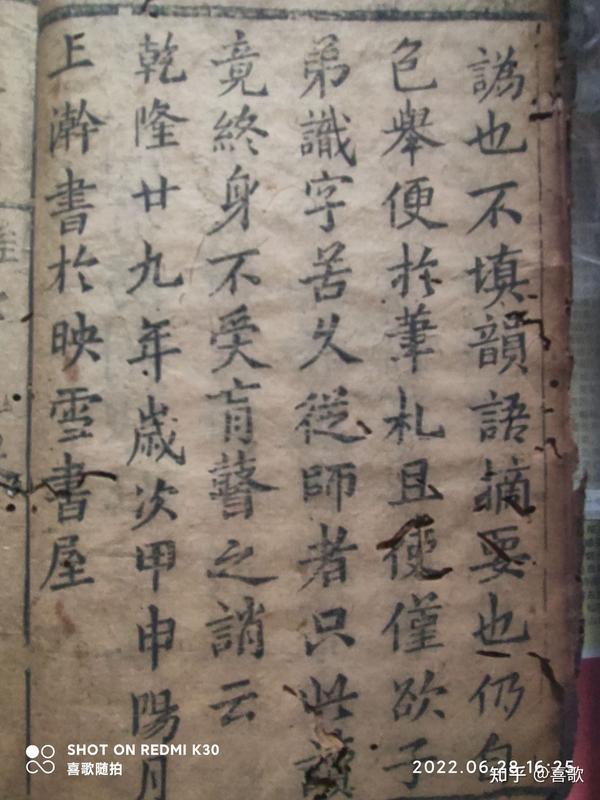 譌也不填韻語摘要也仍自
色舉便於筆札且使僅欲子
弟識字苦久從師者只此讀
竟終身不受肓瞽之誚云
乾隆廿九年歲次甲申陽月
上澣書於映雪書屋
SHOT ON REDMI K30
喜歌随拍
2022.06.28 16:25
知乎 @喜歌